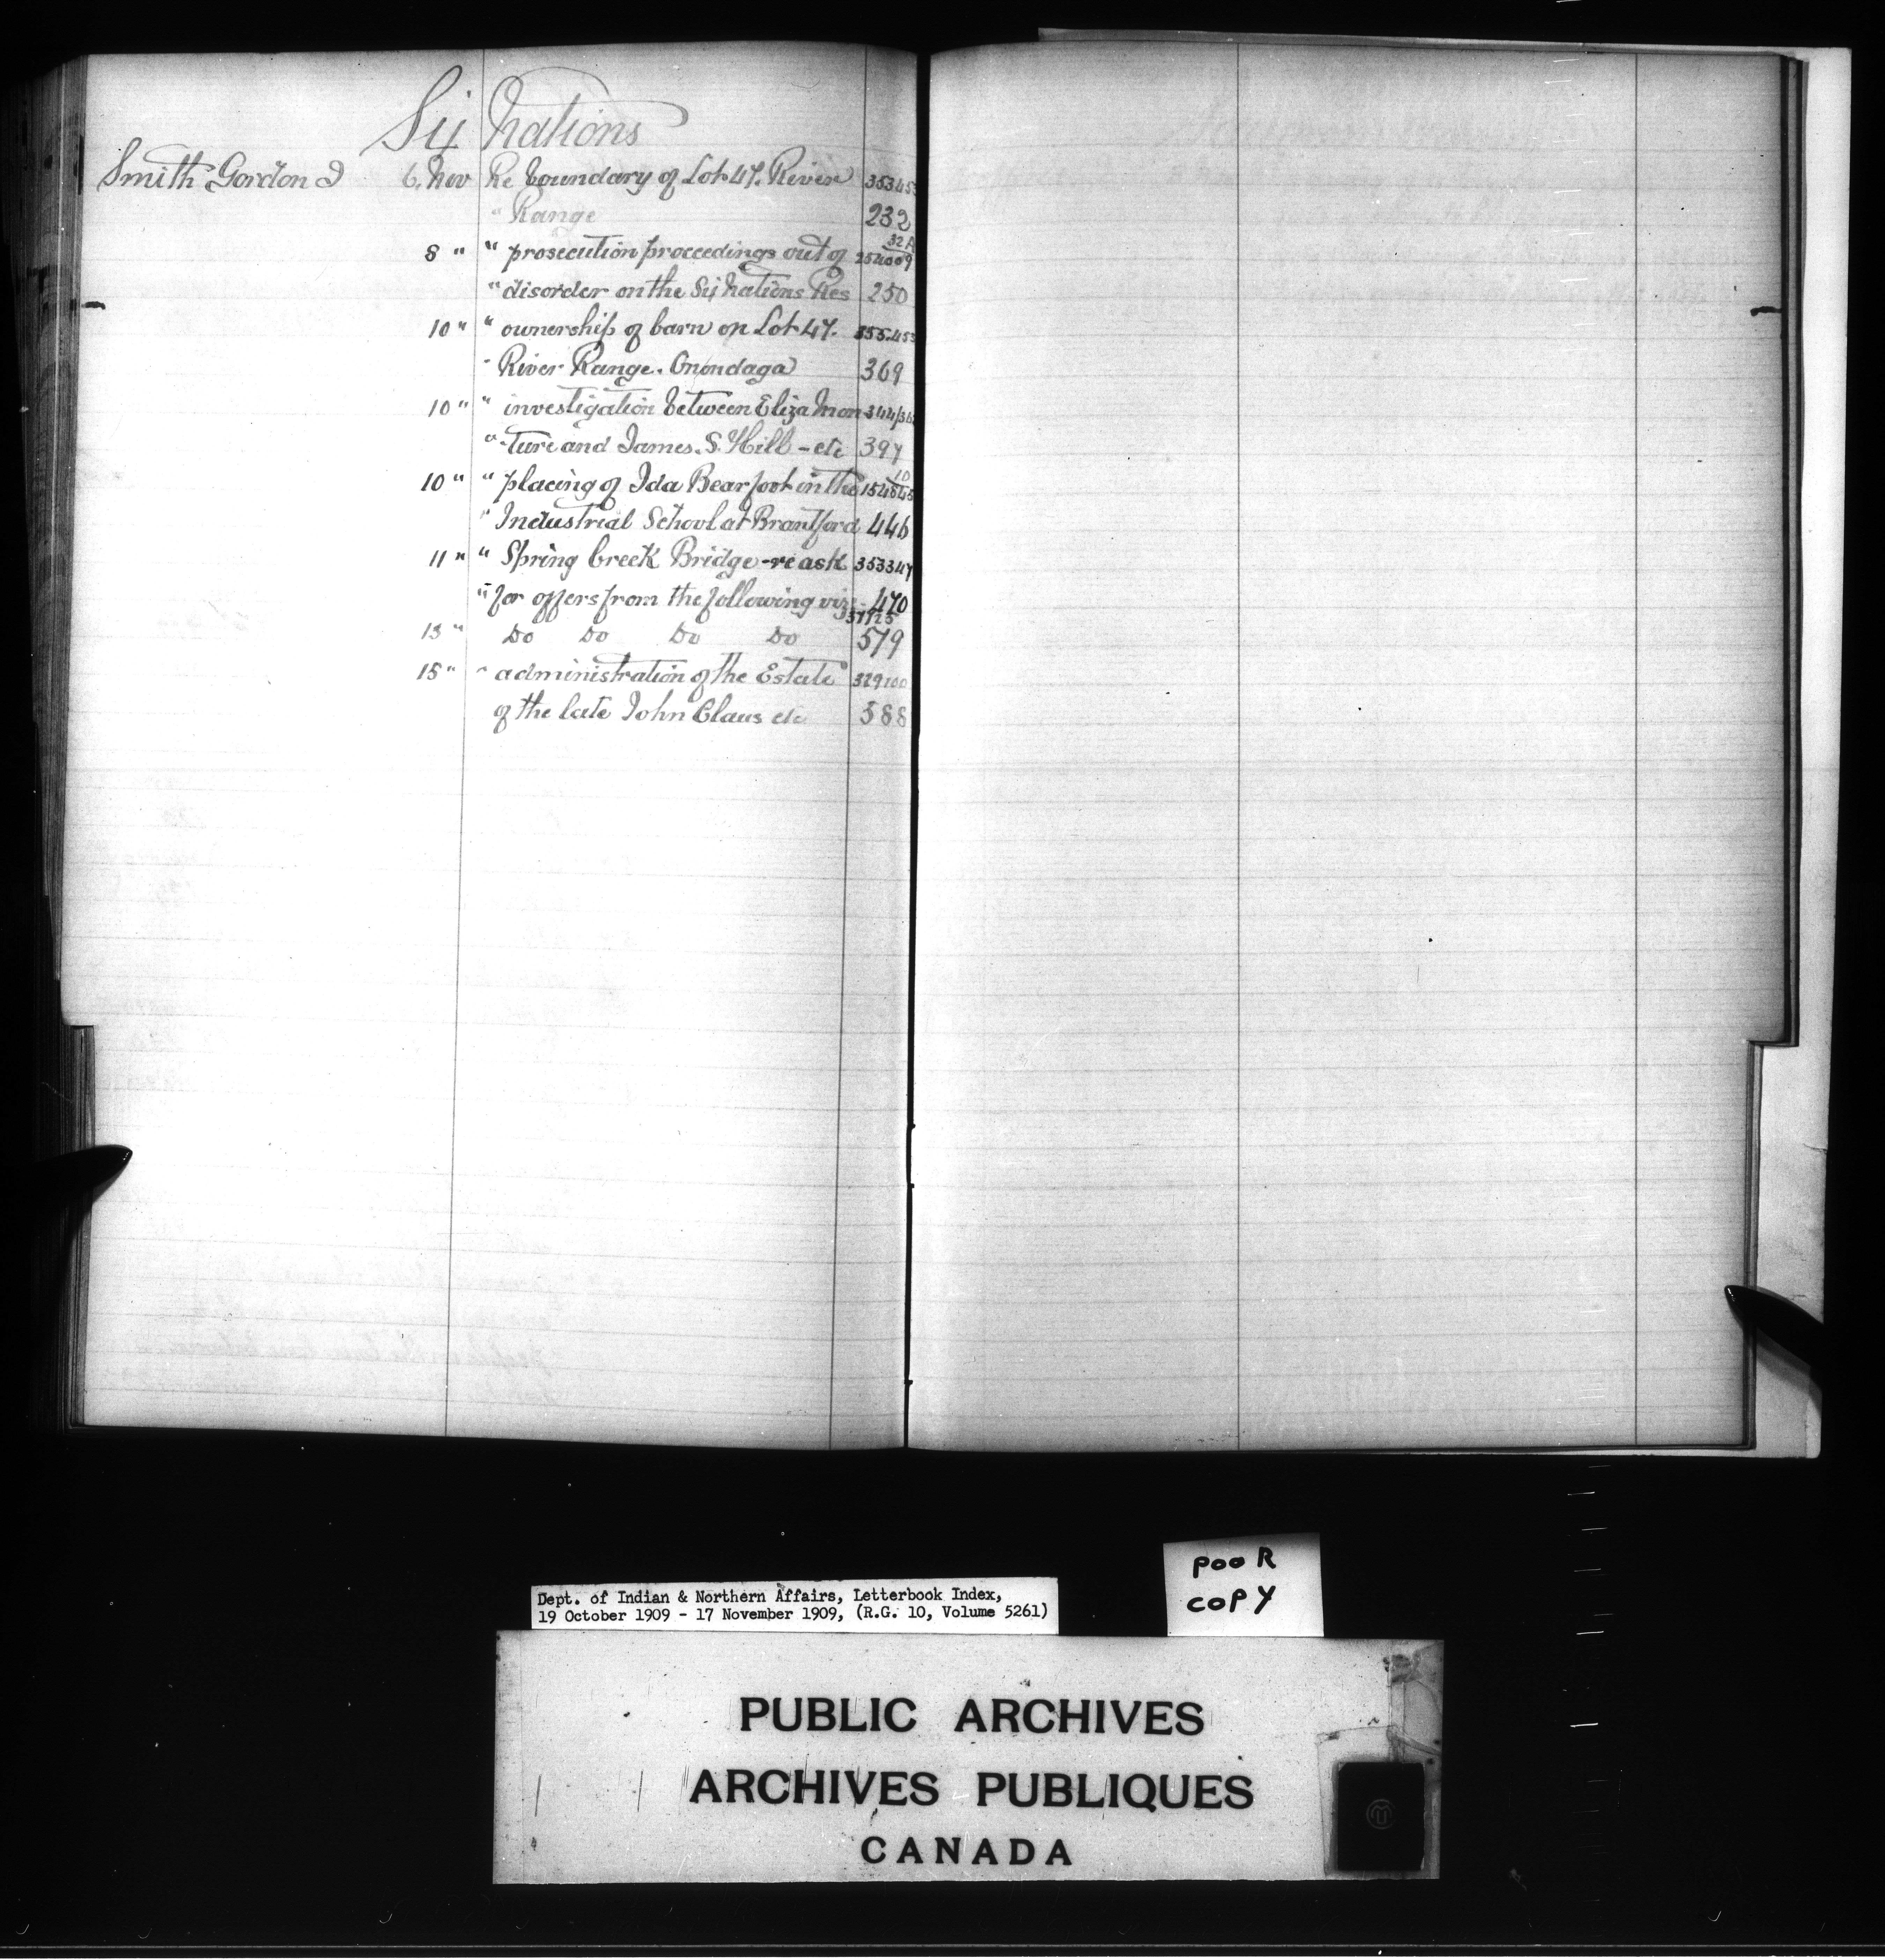 Six Nations
Smith Gordon J 6. Nov Re boundary of Lot 47. River 353453
" Range 232
8 " " prosecution proceedings out of 32A 254009
" disorder on the Six Nations Res 250
10 " " ownership of barn on Lot 47. 353453
" River Range. Onondaga 369
10 " " investigation between Eliza Mon 344/36
" ture and James. S. Hill - etc 397
10 " " placing of Ida Bearfoot in the 10 154845
" Industrial School at Brantford 446
11 " " Spring Creek Bridge - re ask 353347
" for offers from the following viz 470
13 " Do Do Do Do 579
15 " " administration of the Estate 329100
of the late John Claus etc 588
Dept. of Indian & Northern Affairs, Letterbook Index,
19 October 1909 - 17 November 1909, (R.G. 10, Volume 5261)
POOR
COPY
PUBLIC ARCHIVES
ARCHIVES PUBLIQUES
CANADA